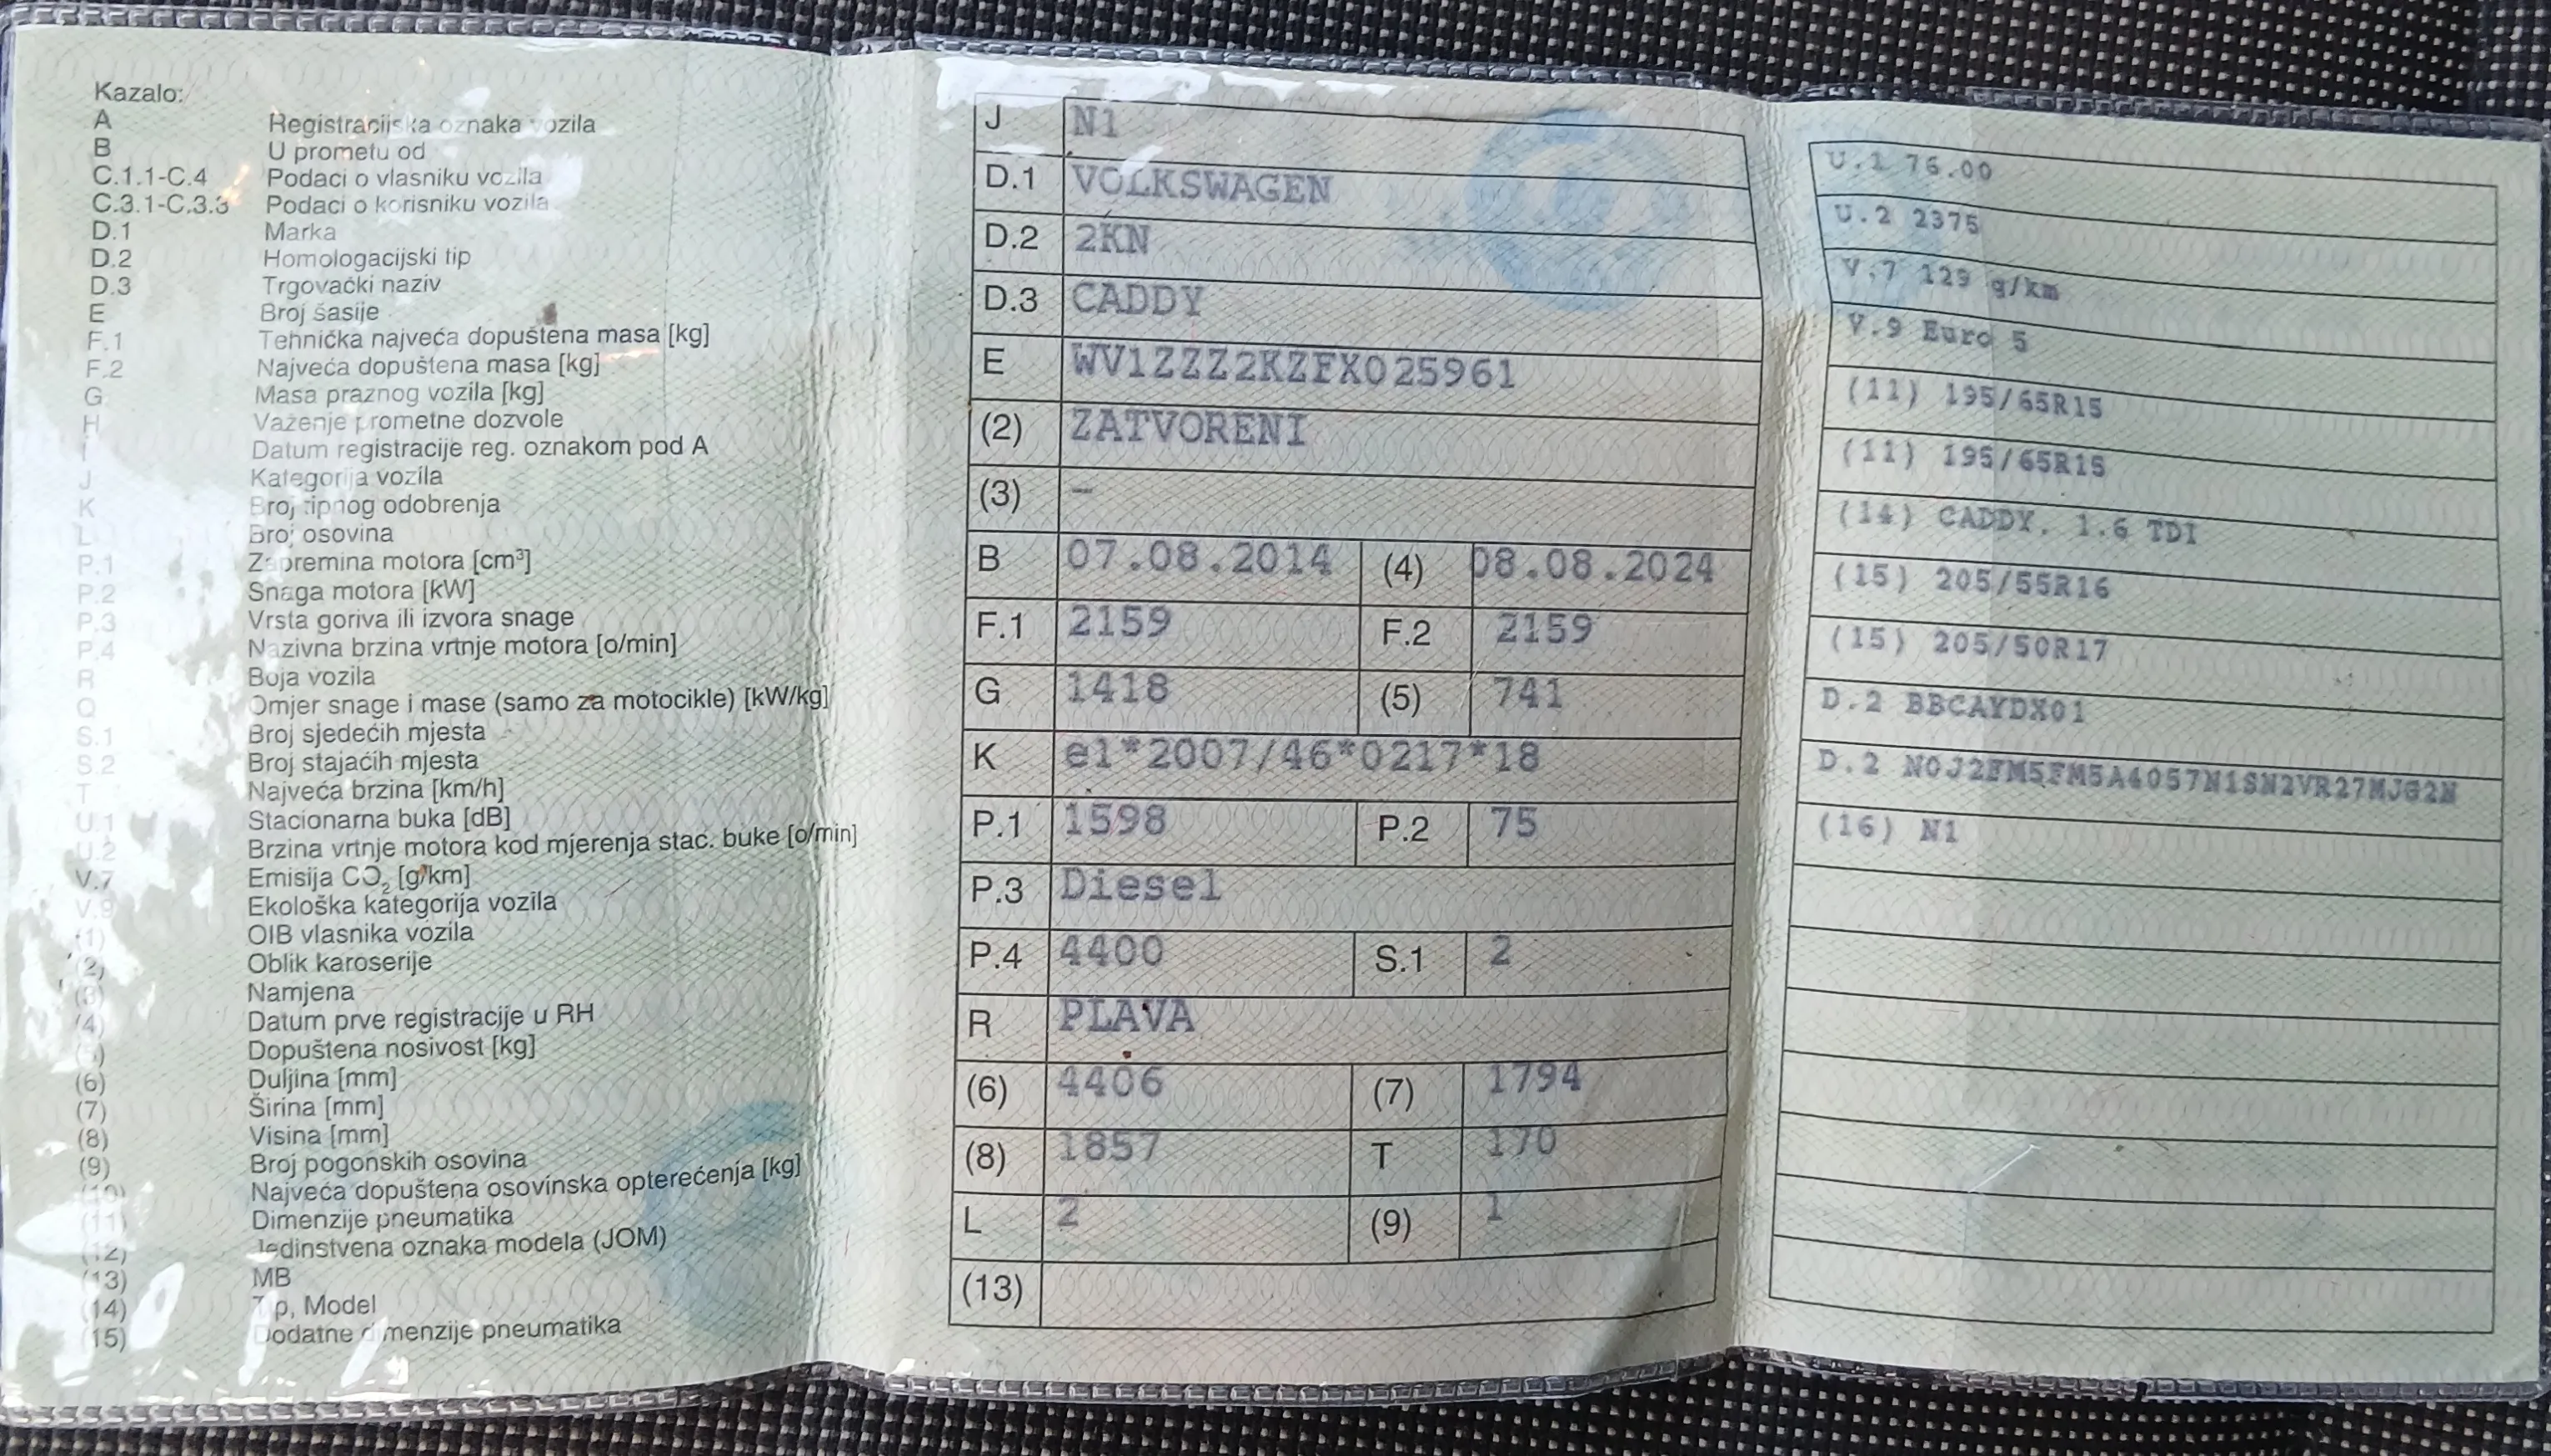 Kazalo:
A Registracijska oznaka vozila
B U prometu od
C.1.1-C.4 Podaci o vlasniku vozila
C.3.1-C.3.3 Podaci o korisniku vozila
D.1 Marka
D.2 Homologacijski tip
D.3 Trgovački naziv
E Broj šasije
F.1 Tehnička najveća dopuštena masa [kg]
F.2 Najveća dopuštena masa [kg]
G Masa praznog vozila [kg]
H Važenje prometne dozvole
I Datum registracije reg. oznakom pod A
J Kategorija vozila
K Broj tipnog odobrenja
L Broj osovina
P.1 Zapremina motora [cm³]
P.2 Snaga motora [kW]
P.3 Vrsta goriva ili izvora snage
P.4 Nazivna brzina vrtnje motora [o/min]
R Boja vozila
Q Omjer snage i mase (samo za motocikle) [kW/kg]
S.1 Broj sjedećih mjesta
S.2 Broj stajaćih mjesta
T Najveća brzina [km/h]
U.1 Stacionarna buka [dB]
U.2 Brzina vrtnje motora kod mjerenja stac. buke [o/min]
V.7 Emisija CO₂ [g/km]
V.9 Ekološka kategorija vozila
(1) OIB vlasnika vozila
(2) Oblik karoserije
(3) Namjena
(4) Datum prve registracije u RH
Dopuštena nosivost [kg]
(6) Duljina [mm]
(7) Širina [mm]
(8) Visina [mm]
(9) Broj pogonskih osovina
(10) Najveća dopuštena osovinska opterećenja [kg]
(11) Dimenzije pneumatika
(12) Jedinstvena oznaka modela (JOM)
(13) MB
(14) Tip, Model
(15) Dodatne dimenzije pneumatika
J N1
D.1 VOLKSWAGEN
D.2 2KN
D.3 CADDY
E WV1ZZZ2KZFX025961
(2) ZATVORENI
(3) –
B 07.08.2014 (4) 08.08.2024
F.1 2159 F.2 2159
G 1418 (5) 741
K e1*2007/46*0217*18
P.1 1598 P.2 75
P.3 Diesel
P.4 4400 S.1 2
R PLAVA
(6) 4406 (7) 1794
(8) 1857 T 170
L 2 (9) 1
(13)
U.1 76.00
U.2 2375
V.7 129 g/km
V.9 Euro 5
(11) 195/65R15
(11) 195/65R15
(14) CADDY. 1.6 TDI
(15) 205/55R16
(15) 205/50R17
D.2 BBCAYDX01
D.2 N0J2FM5FM5A4057N1SN2VR27MJG2N
(16) N1